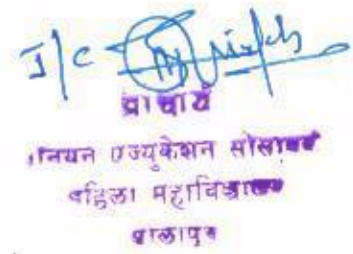 I/C
प्राचार्य
नियन एज्युकेशन सोसायटी
महिला महाविद्यालय